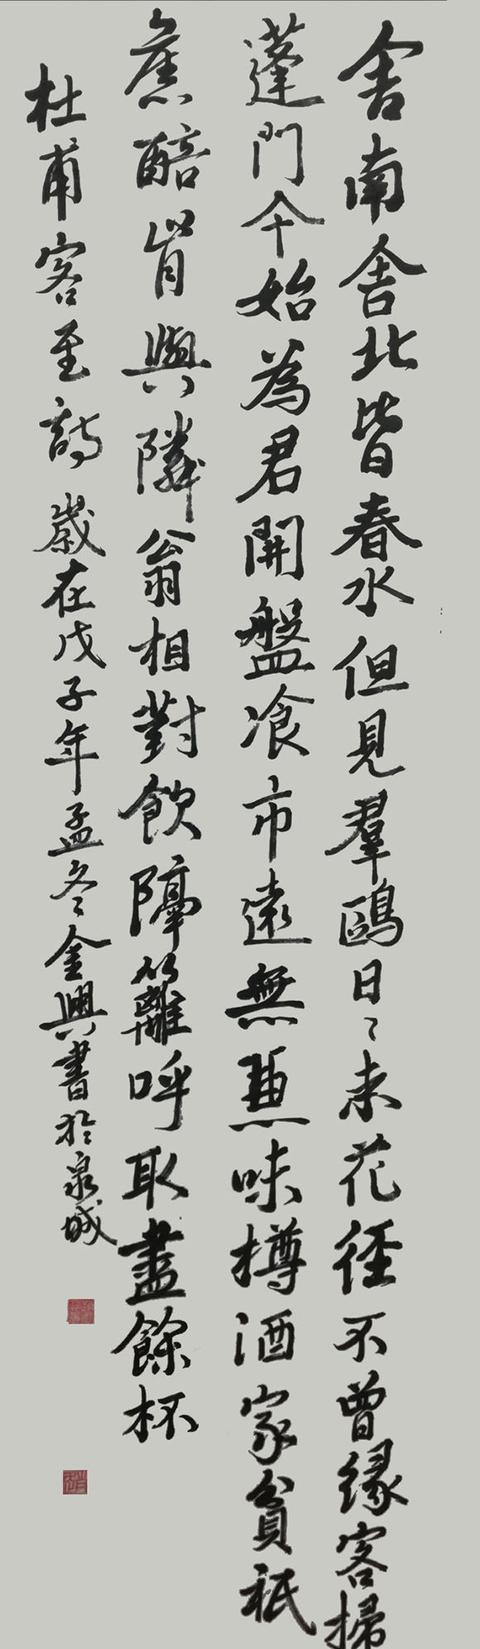 舍南舍北皆春水但見羣鷗日々来花徑不曾緣客掃
蓬門今始為君開盤飡市遠無兼味樽酒家貧祇
舊醅肯與隣翁相對飲隔籬呼取盡餘杯
杜甫客至詩歲在戊子年孟冬金興書於泉城